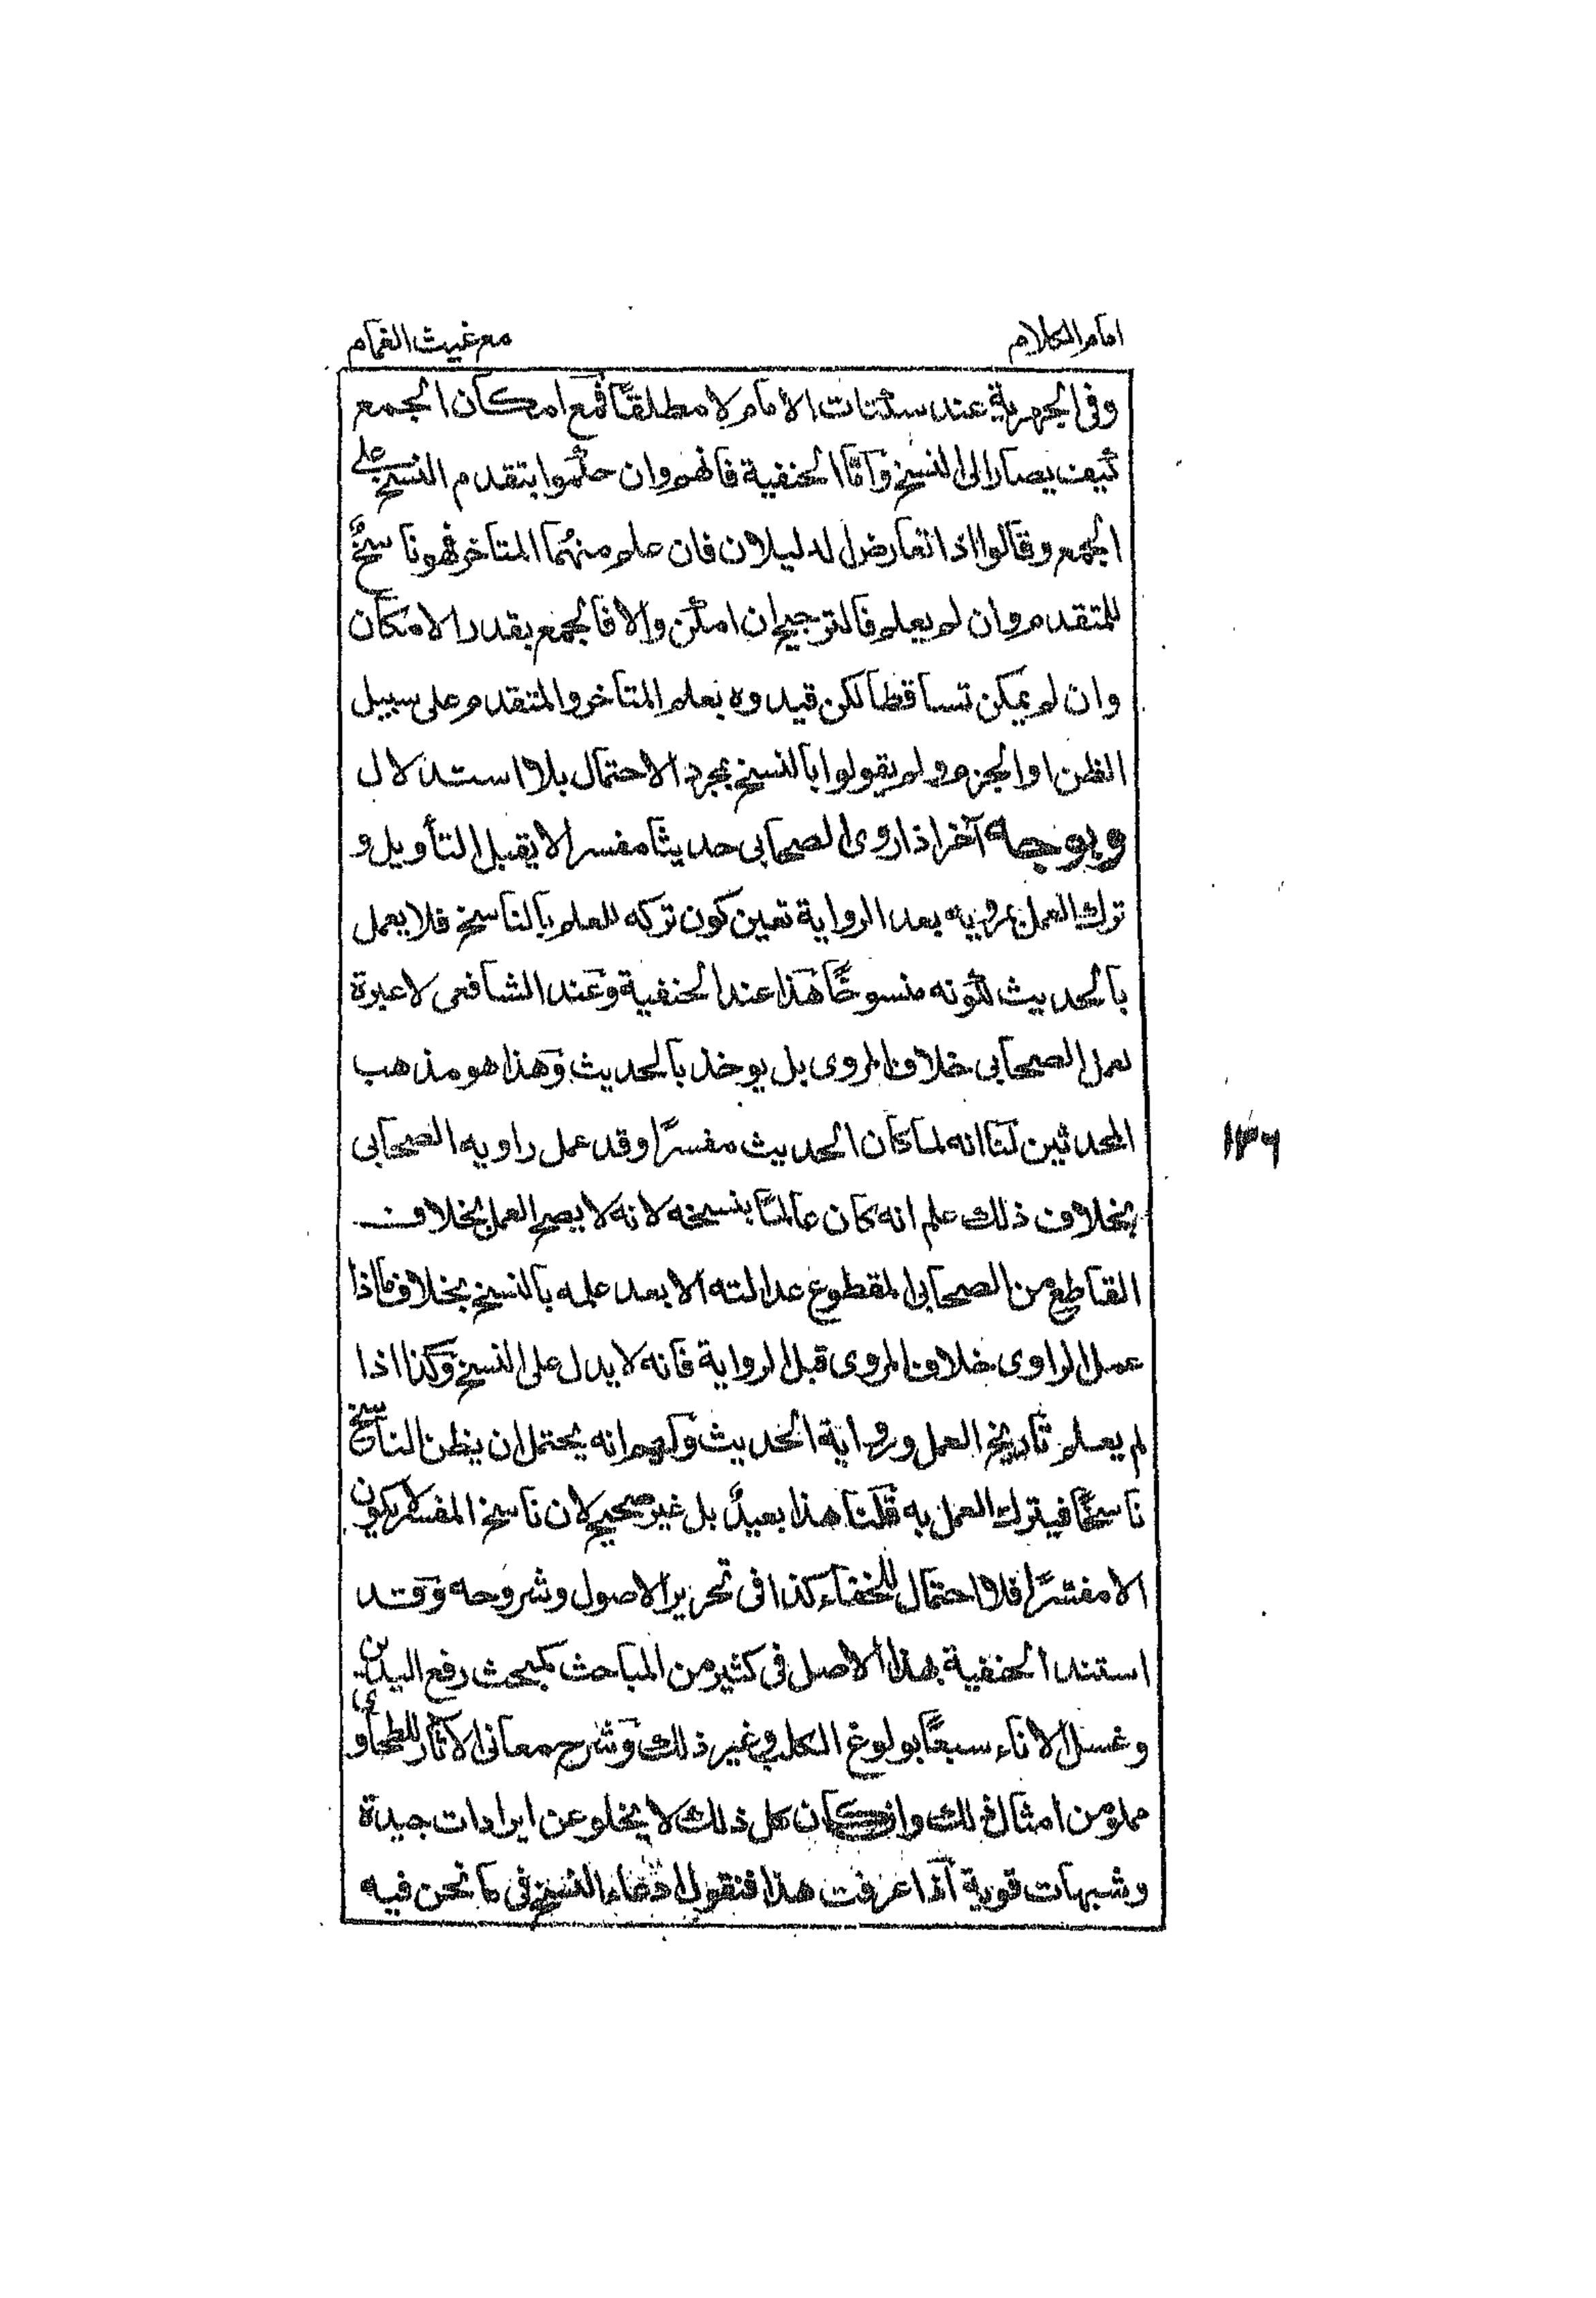 امام الكلام
مع غيث الغمام
وفى الجهرية عند سكتات الامام لا مطلقًا فمع امكان الجمع
كيف يصار الى النسخ وامّا الحنفية فانهم وان حكموا بتقدم النسخ على
الجمع وقالوا اذا تعارض الدليلان فان علم منهما المتاخر فهو ناسخٌ
للمتقدم وان لم يعلم فالترجيح ان امكن والا فالجمع بقدر الامكان
وان لم يمكن تساقطا لكن قيدوه بعلم المتاخر والمتقدم على سبيل
الظن او الجزم ولم يقولوا بالنسخ بمجرد الاحتمال بلا استدلال
وبوجه آخر اذا روى الصحابى حديثا مفسرا لا يقبل التأويل و
ترك العمل بمرويه بعد الرواية تعين كون تركه للعلم بالناسخ فلا يعمل
بالحديث لكونه منسوخًا هذا عند الحنفية وعند الشافعى لا عبرة
لعمل الصحابى خلاف المروى بل يوخذ بالحديث وهذا هو مذهب
المحدثين لنا انه لما كان الحديث مفسرًا وقد عمل راويه الصحابى
بخلاف ذلك علم انه كان عالمًا بنسخه لانه لا يصح العمل بخلاف
القاطع من الصحابى المقطوع عدالته الا بعد علمه بالنسخ بخلاف ما اذا
عمل الراوى خلاف المروى قبل الرواية فانه لا يدل على النسخ وكذا اذا
لم يعلم تاريخ العمل ورواية الحديث انه يحتمل ان يظن الناسخ
ناسخًا فيترك العمل به قلنا هذا بعيدٌ بل غير صحيح لان ناسخ المفسر لا يكون
الا مفسّرًا فلا احتمال للخفاء كذا فى تحرير الاصول وشروحه وقد
استند الحنفية بهذا الاصل فى كثير من المباحث كبحث رفع اليدين
وغسل الاناء سبعًا بولوغ الكلب وغير ذلك وشرح معانى الآثار للطحاوى
مملو من امثال ذلك وان كان كل ذلك لا يخلو عن ايرادات جيدة
وشبهات قوية اذا عرفت هذا فنقول ادعاء النسخ فى ما نحن فيه
١٣٦